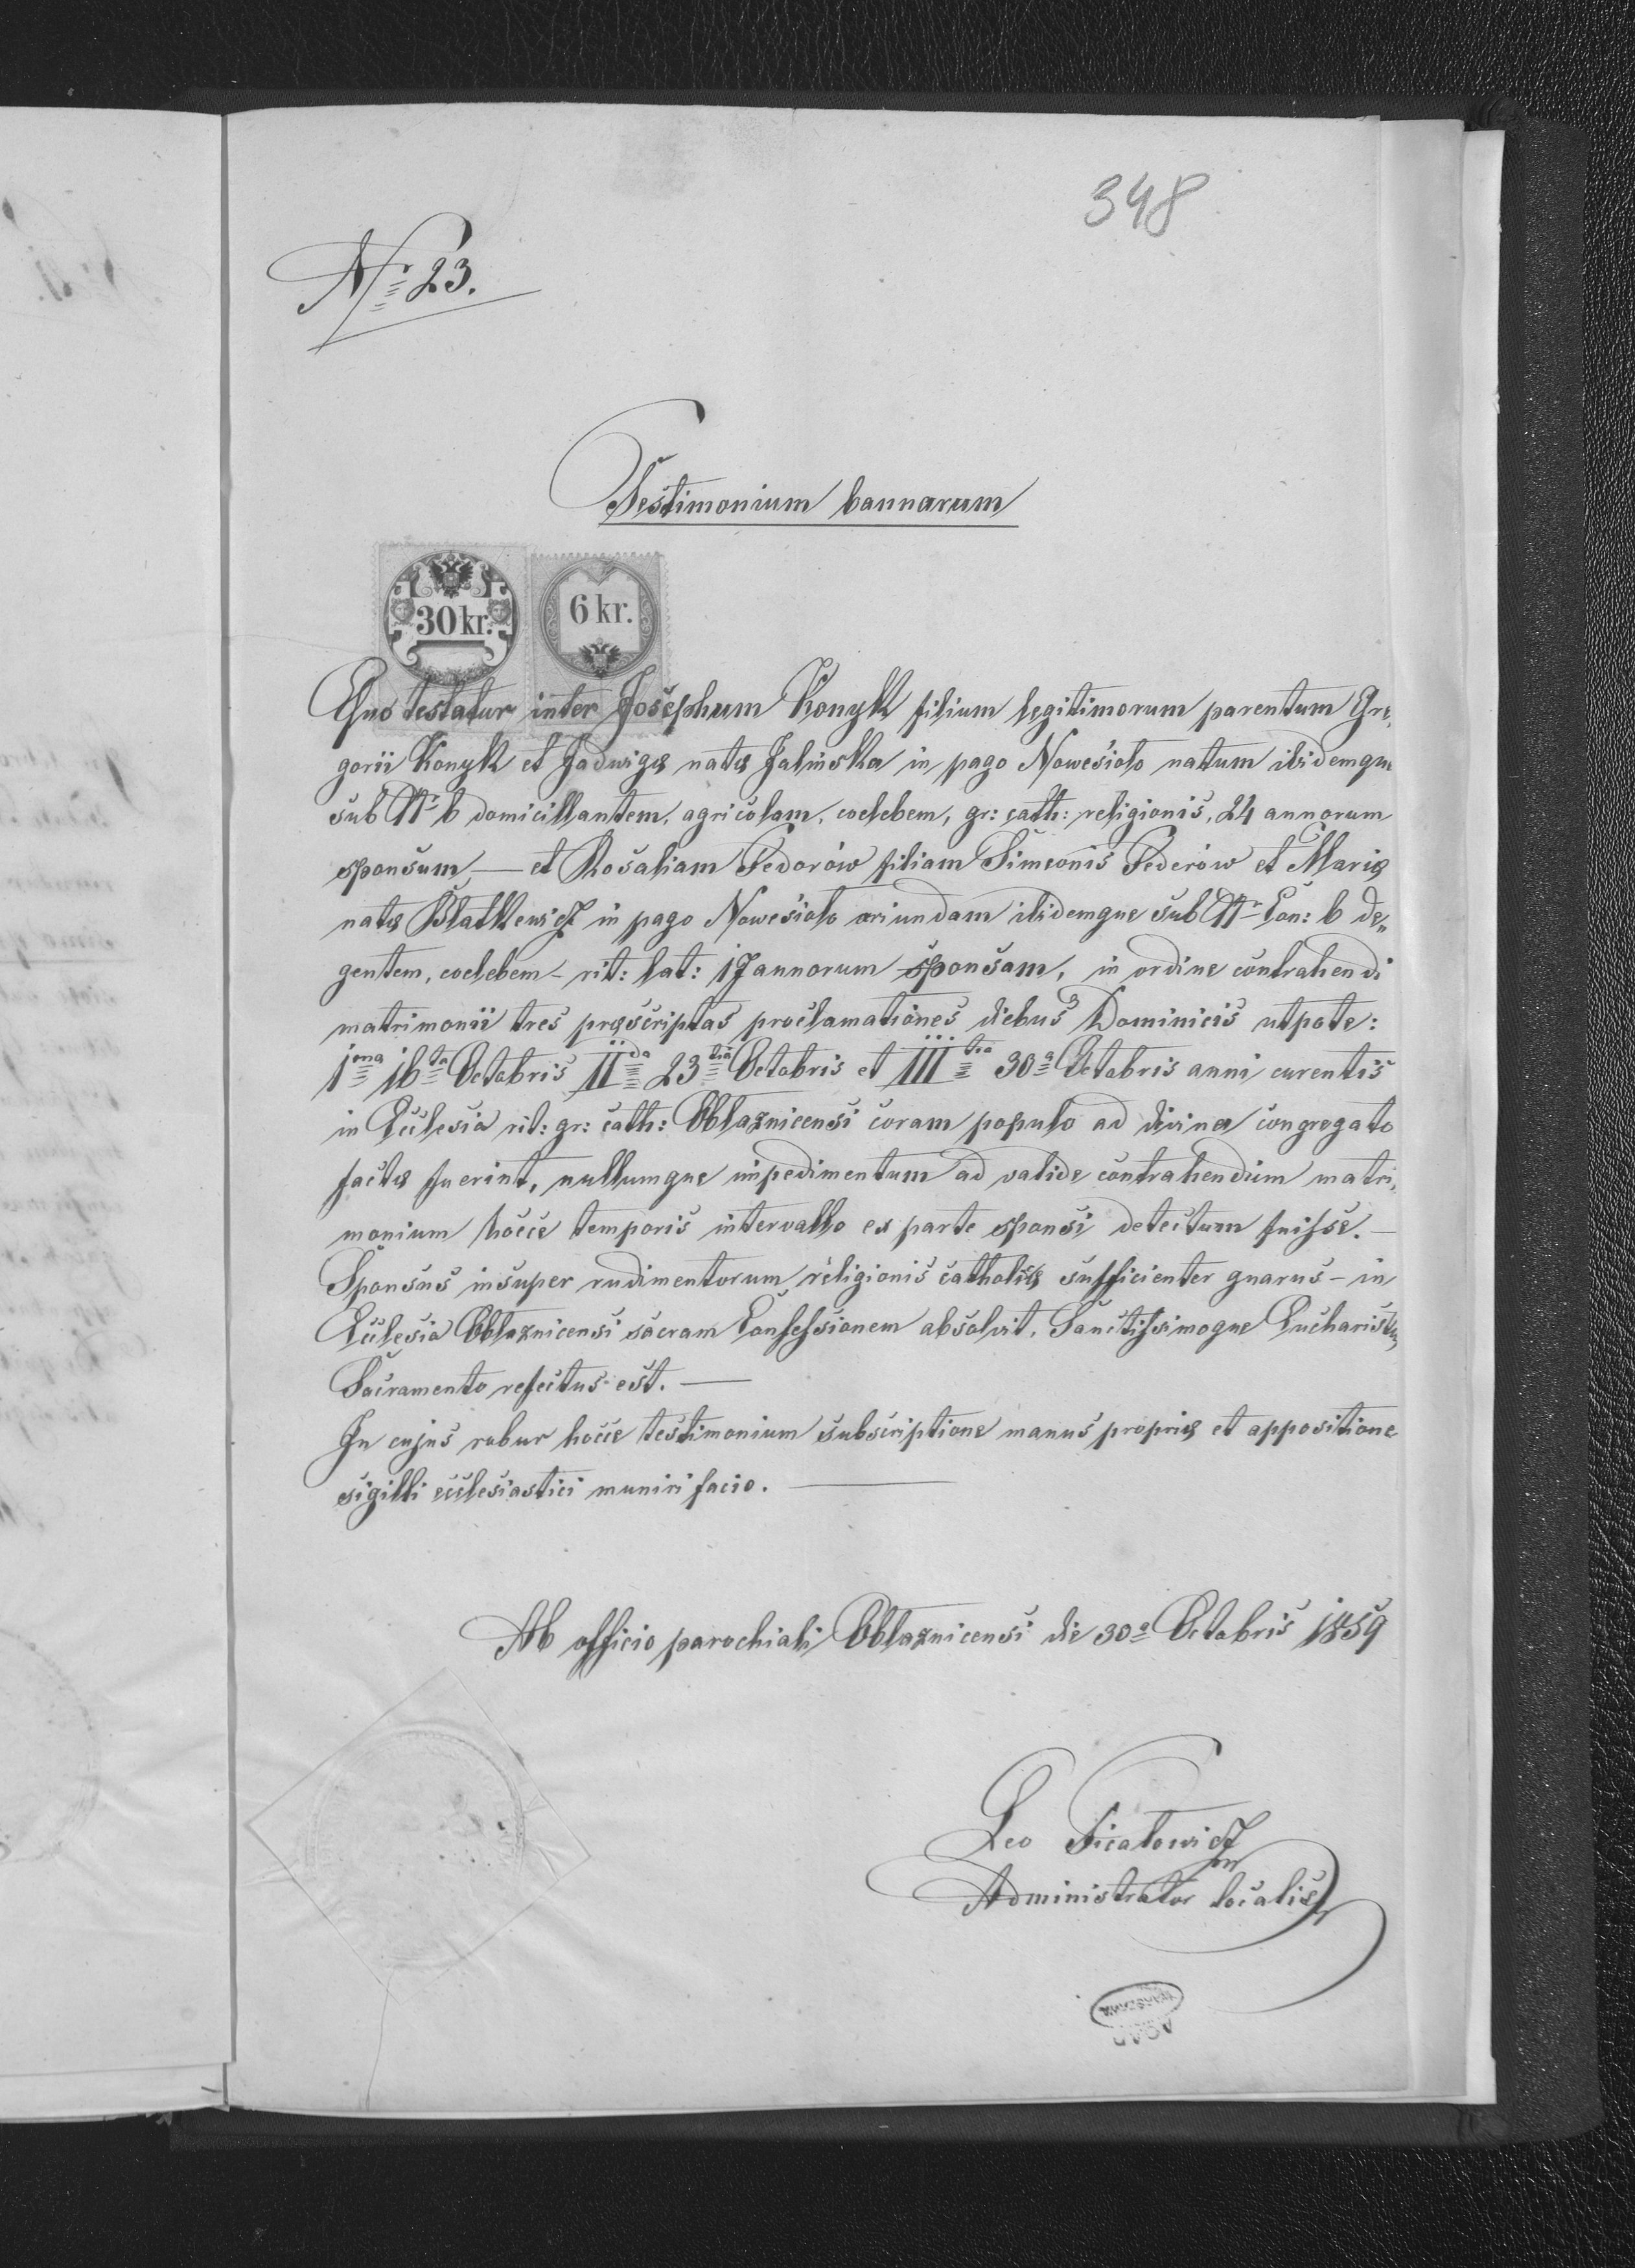 348
Nr 23.
Testimonium bannarum
30 kr.
6 kr.
Quo testatur inter Josephum Konyk filium legitimorum parentum Gre,
gorii Konyk et Jadwigæ natæ Jalinska in pago Nowesioło natum ibidemque
sub Nr 6 domicillantem, agricolam, coelebem, gr: cath: religionis, 24 annorum
sponsum — et Rosaliam Fedorów filiam Simeonis Federów et Mariæ
natæ in pago Nowesioło oriundam ibidemque sub Nr Con: 6 de„
gentem, coelebem - rit: lat: 17 annorum sponsam, in ordine contrahendi
matrimonii tres præscriptas proclamationes diebus Dominicis utpote:
1ma 16ta Octobris IIda 23tia Octobris et IIItia 30a Octobris anni curentis
in Ecclesia rit: gr: cath: Oblaznicensi coram populo ad divina congregato
factæ fuerint, nullumque impedimentum ad valide contrahendum matri,
monium hocce temporis intervallo ex parte sponsi detectum fuisse. —
Sponsus insuper rudimentorum religionis catholicæ sufficienter gnarus - in
Ecclesia Oblaznicensi sacram Confessionem absolvit, Sanctissimoque Eucharistiæ
Sacramento refectus est. —
In cujus robur hocce testimonium subscriptione manus propriæ et appositione
sigilli ecclesiastici muniri facio. —
Ab officio parochiali Oblaznicensi die 30a Octobris 1859
Leo
Administrator localis
WARSZAWA
AGAD